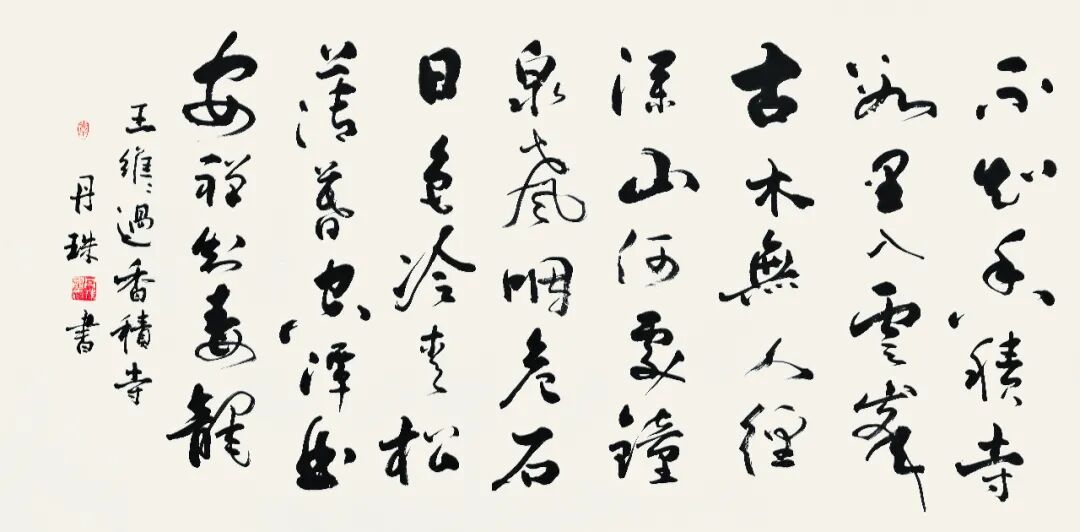 不知香積寺
數里入雲峯
古木無人徑
深山何處鐘
泉聲咽危石
日色冷青松
薄暮空潭曲
安禪制毒龍
王維、過香積寺
丹珠書